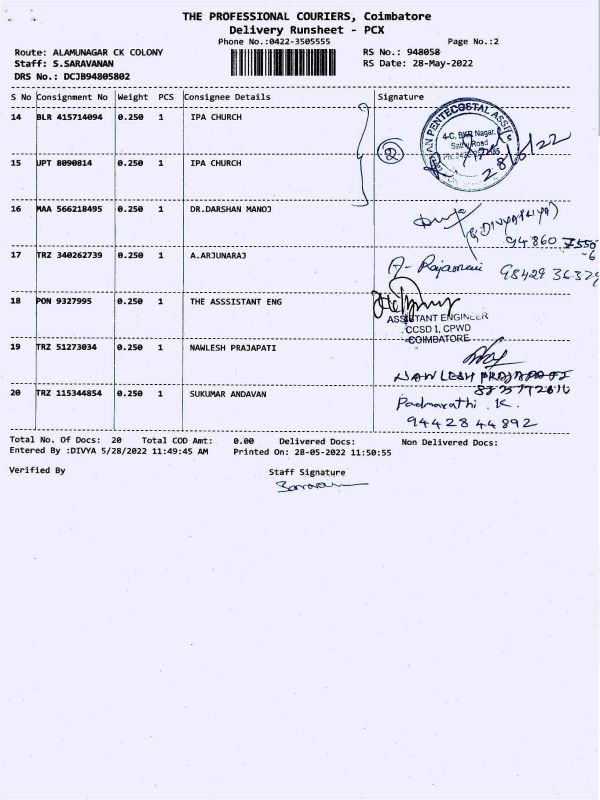 THE PROFESSIONAL COURIERS, Coimbatore
Delivery Runsheet - PCX
Phone No.:0422-3505555
Page No.:2
Route: ALAMUNAGAR CK COLONY
RS No.: 948058
Staff: S.SARAVANAN
RS Date: 28-May-2022
DRS No.: DCJB94805802
S No Consignment No Weight PCS Consignee Details Signature
14 BLR 415714094 0.250 1 IPA CHURCH
PENTECOSTAL
4-C, BKR Nagar,
Road
28/5/22
2
15 UPT 8090814 0.250 1 IPA CHURCH
16 MAA 566218495 0.250 1 DR.DARSHAN MANOJ
94860
17 TRZ 340262739 0.250 1 A.ARJUNARAJ
A- Rajamani 98429 36329
18 PON 9327995 0.250 1 THE ASSSISTANT ENG
ASSISTANT ENGINEER
CCSD I, CPWD
COIMBATORE
19 TRZ 51273034 0.250 1 NAWLESH PRAJAPATI
NAWLESH PRAJAPATI
20 TRZ 115344854 0.250 1 SUKUMAR ANDAVAN
Padmavathi . K.
94428 44892
Total No. Of Docs: 20 Total COD Amt: 0.00 Delivered Docs: Non Delivered Docs:
Entered By :DIVYA 5/28/2022 11:49:45 AM Printed On: 28-05-2022 11:50:55
Verified By
Staff Signature